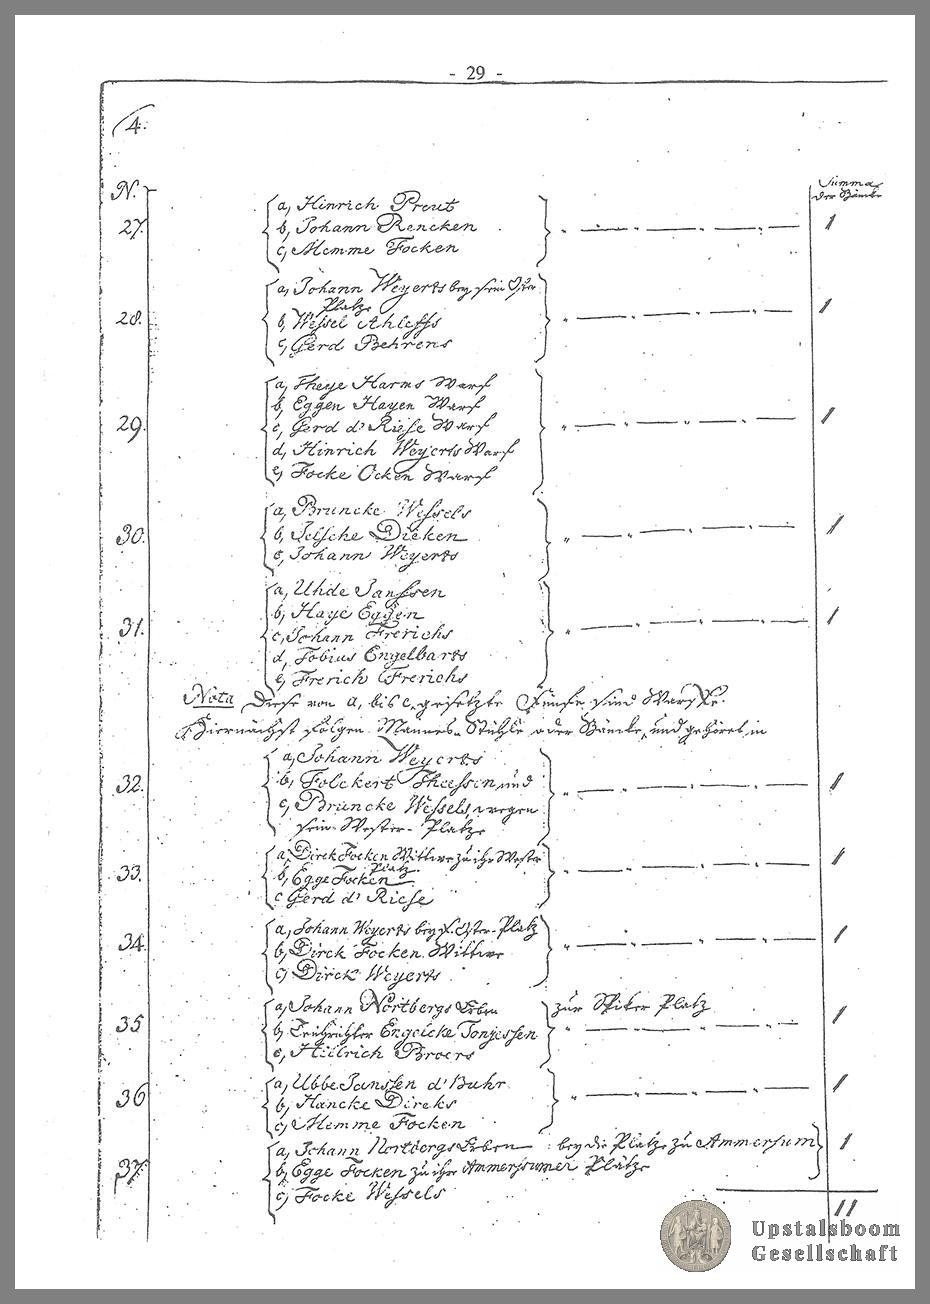 - 29 -
4.
N.
Summa
der Bäncke
27.
a, Hinrich Preut
b, Johann Rencken
c, Memme Focken
1
28.
a, Johann Weyerts bey sein Oster
Platze
b, Wessel Ahlefss
c, Gerd Behrens
1
29.
a, Theye Harms Warf
b, Eggen Hayen Warf
c, Gerd d' Riese Warf
d, Hinrich Weyerts Warf
e, Focke Ocken Warf
1
30.
a, Bruncke Wessels
b, Dieken
c, Johann Weyerts
1
31.
a, Uhde Janssen
b, Haye Eggen
c, Johann Frerichs
d, Tobius Engelbarts
e, Frerich Frerichs
1
Nota Diese von a, bis e, gesetzte Fünfe sind
Hiernächst folgen Mannes-Stühle oder Bäncke, und gehöret in
32.
a, Johann Weyerts
b, Folckert Theessen und
c, Bruncke Wessels, wegen
sein Wester-Platze
1
33.
a, Dirck Focken Wittwe zu ihr Wester
Platz
b, Egge Focken
c Gerd d' Riese
1
34.
a, Johann Weyerts bey s. Oster-Platz
b, Dirck Focken Wittwe
c, Dirck Weyerts
1
35
a, Johann Nortbergs Erben zur Spiker Platz
b, Engelcke Tonjessen
c, Hillrich Broers
1
36
a, Ubbe Janssen d' Buhr
b, Hancke Direks
c, Memme Focken
1
37.
a, Johann Nortbergs Erben bey die Platze zu Ammersum
b, Egge Focken zu ihr Ammersumer Platze
c, Focke Wessels
1
11
Upstalsboom
Gesellschaft